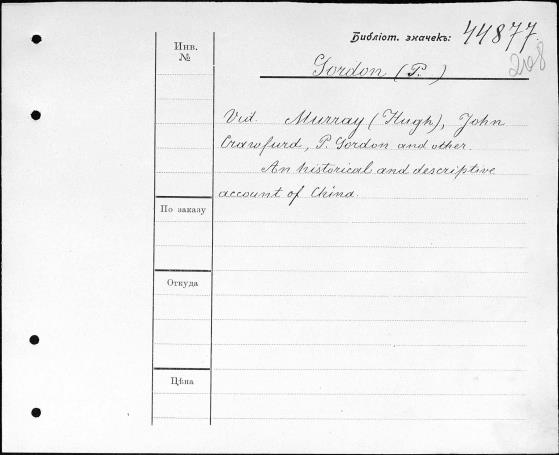 Библіот. значекъ: 44877.
208
Инв.
№
Gordon (P.)
Vid. Murray (Hugh), John
Crawfurd, P. Gordon and other.
An historical and descriptive
account of China.
По заказу
Откуда
Цѣна